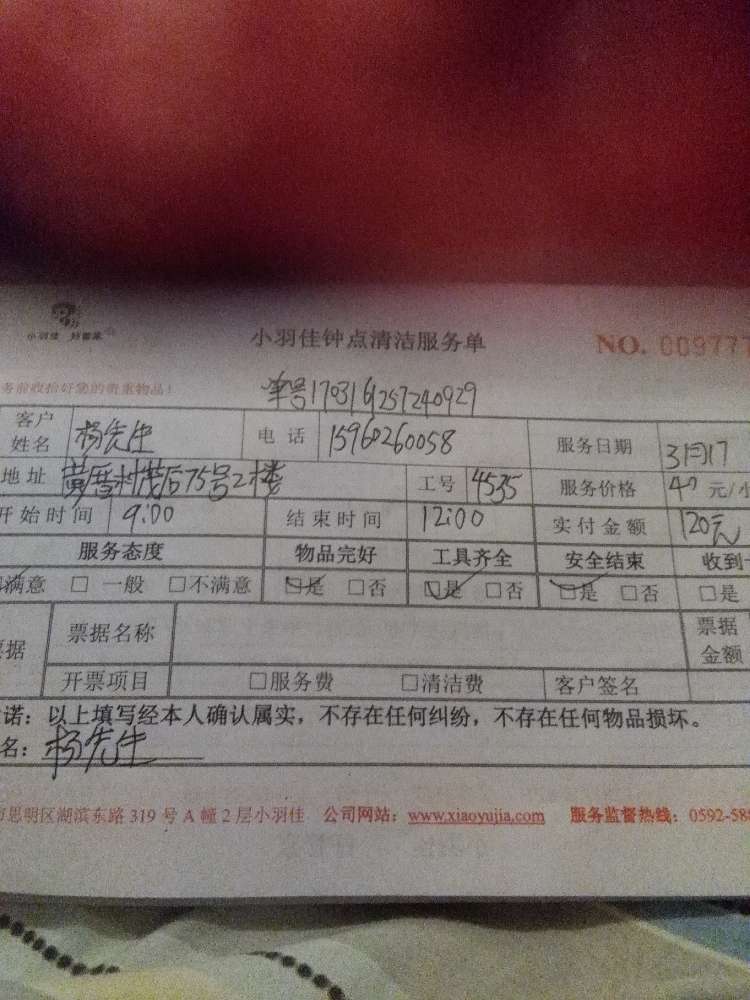 小羽佳 好管家
小羽佳钟点清洁服务单 NO. 009777
务前收拾好您的贵重物品！ 单号170316125724 0929
客户姓名 杨先生 电话 15960260058 服务日期 3月17
地址 黄厝村茂后75号2楼 工号 4535 服务价格 40 元/小
开始时间 9:00 结束时间 12:00 实付金额 120元
服务态度 物品完好 工具齐全 安全结束 收到
满意 □ 一般 □不满意 □是 □否 □是 □否 □是 □否 □是
据 票据名称 票据金额
开票项目 □服务费 □清洁费 客户签名
诺：以上填写经本人确认属实，不存在任何纠纷，不存在任何物品损坏。
名：杨先生
市思明区湖滨东路 319 号 A 幢 2 层小羽佳 公司网站：www.xiaoyujia.com 服务监督热线：0592-588